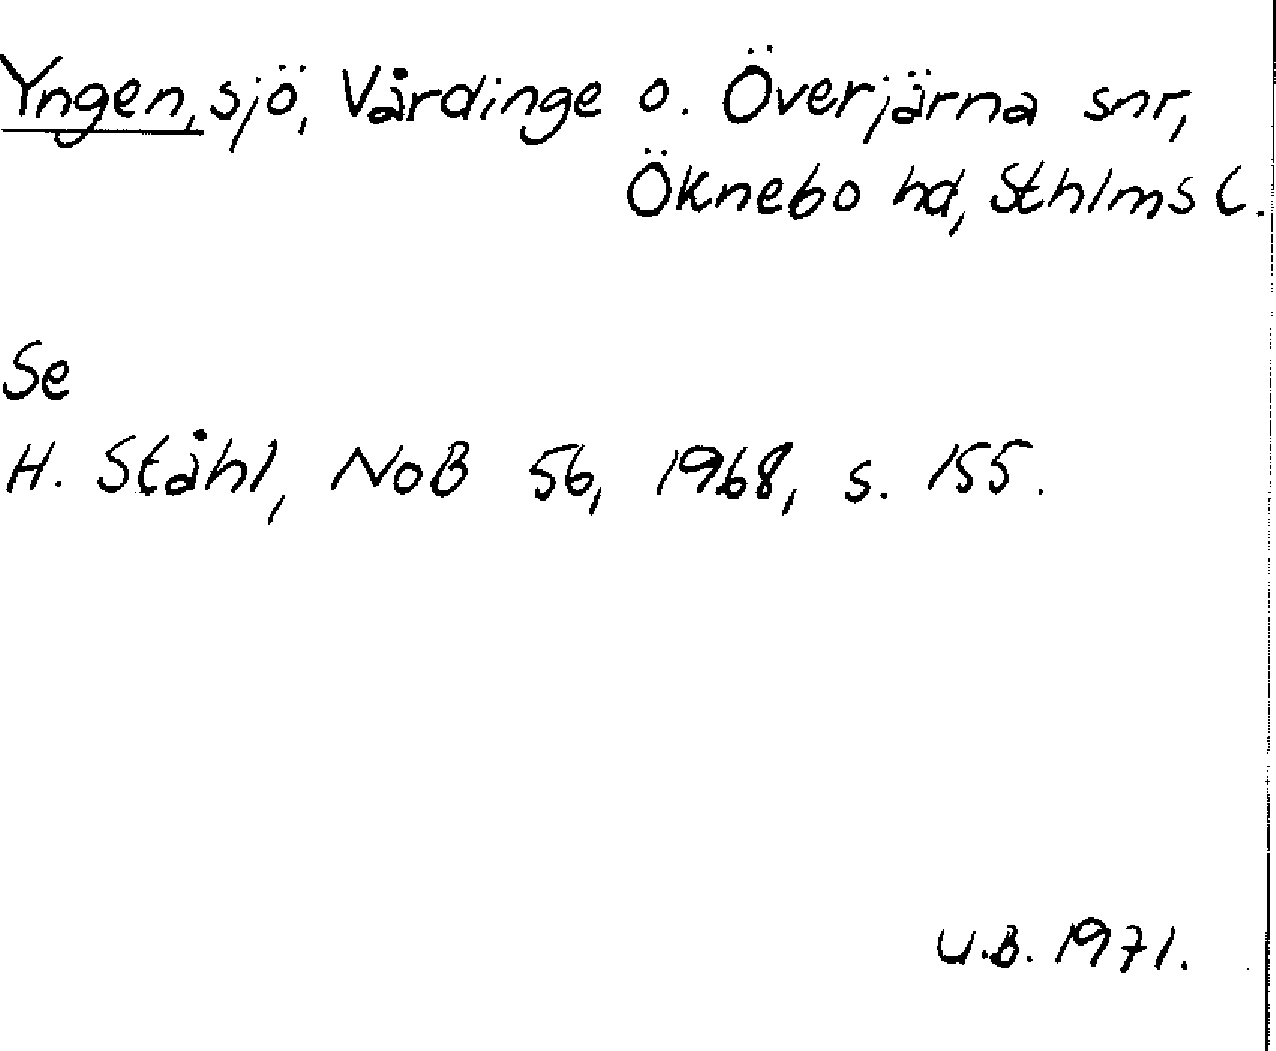 Yngen, sjö, Vårdinge o. Överjärna snr,
Öknebo hd, Sthlms l.
Se
H. Ståhl, NoB 56, 1968, s. 155.
U.B. 1971.